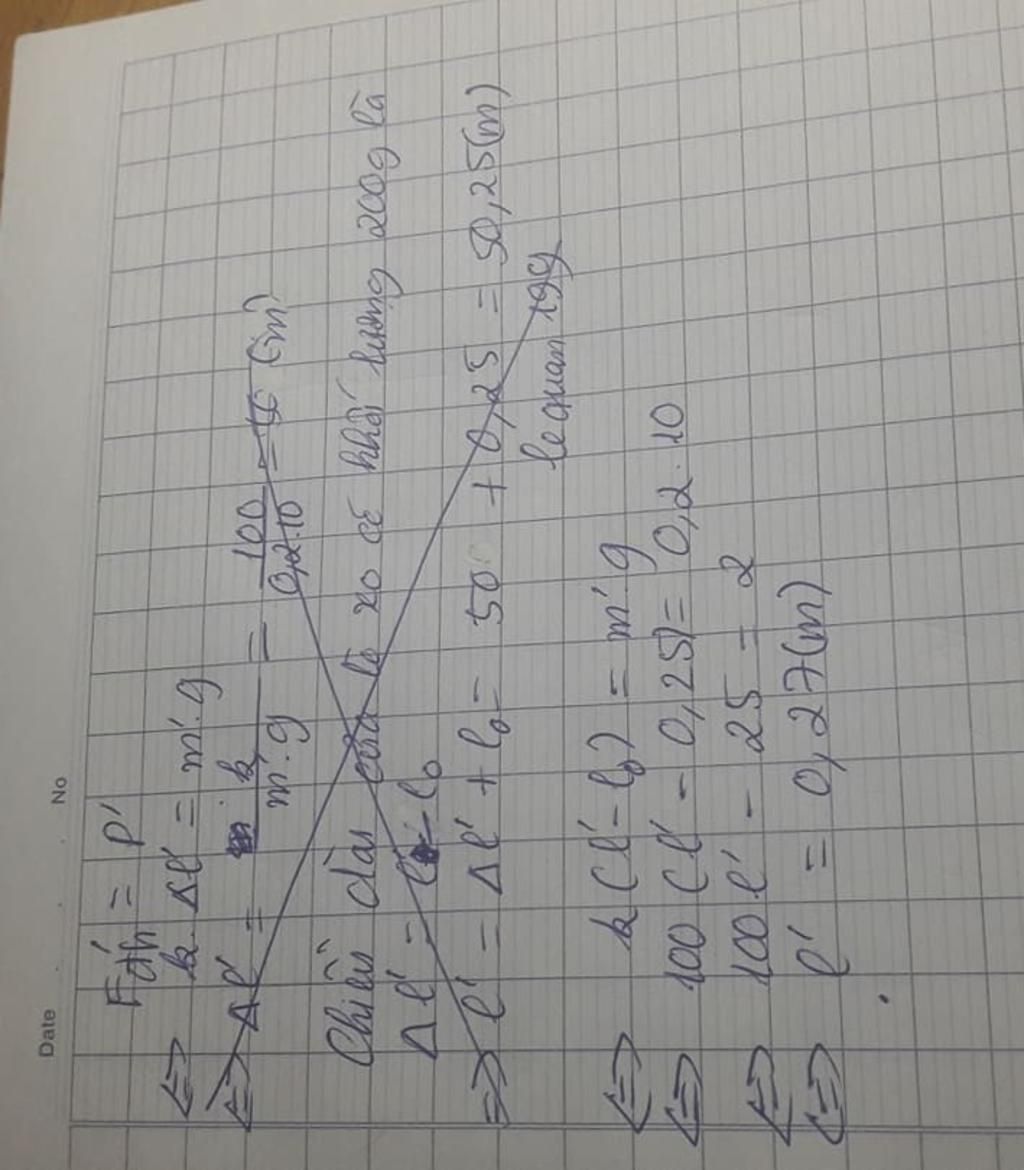 Date No
F'đh = P'
<=> k. Δl' = m'.g
<=> Δl' = k / m'.g = 100 / 0,2.10 = (m)
Chiều dài của lò xo có khối lượng 200g là
Δl' = l' - l₀
=> l' = Δl' + l₀ = 50 + 0,25 = 50,25(m)
lequan199
<=> k (l' - l₀) = m'.g
<=> 100 (l' - 0,25) = 0,2.10
<=> 100l' - 25 = 2
<=> l' = 0,27(m)